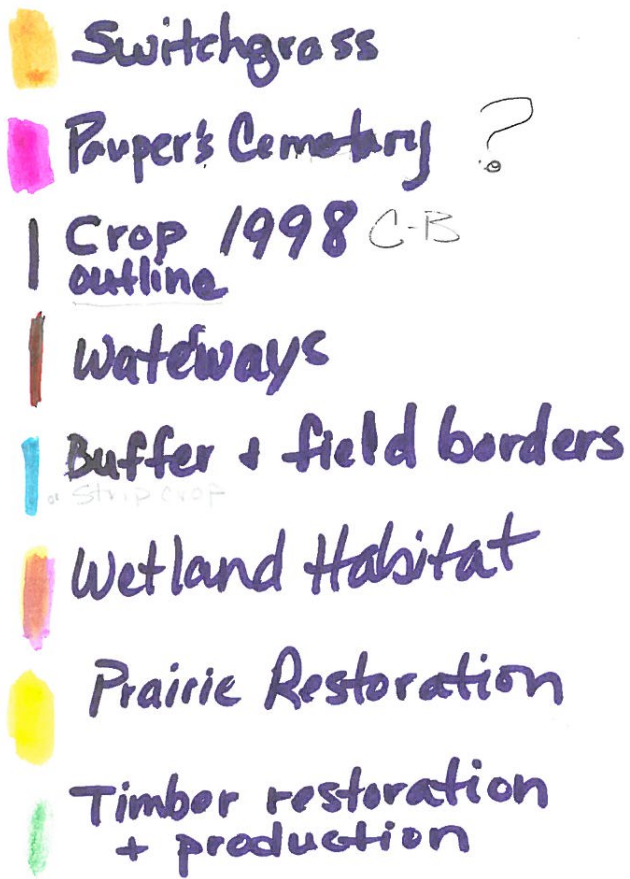 Switchgrass
Pauper's Cemetary ?
Crop 1998 C-B
outline
Wateways
Buffer + field borders
or Strip crop
Wetland Habitat
Prairie Restoration
Timber restoration
+ production